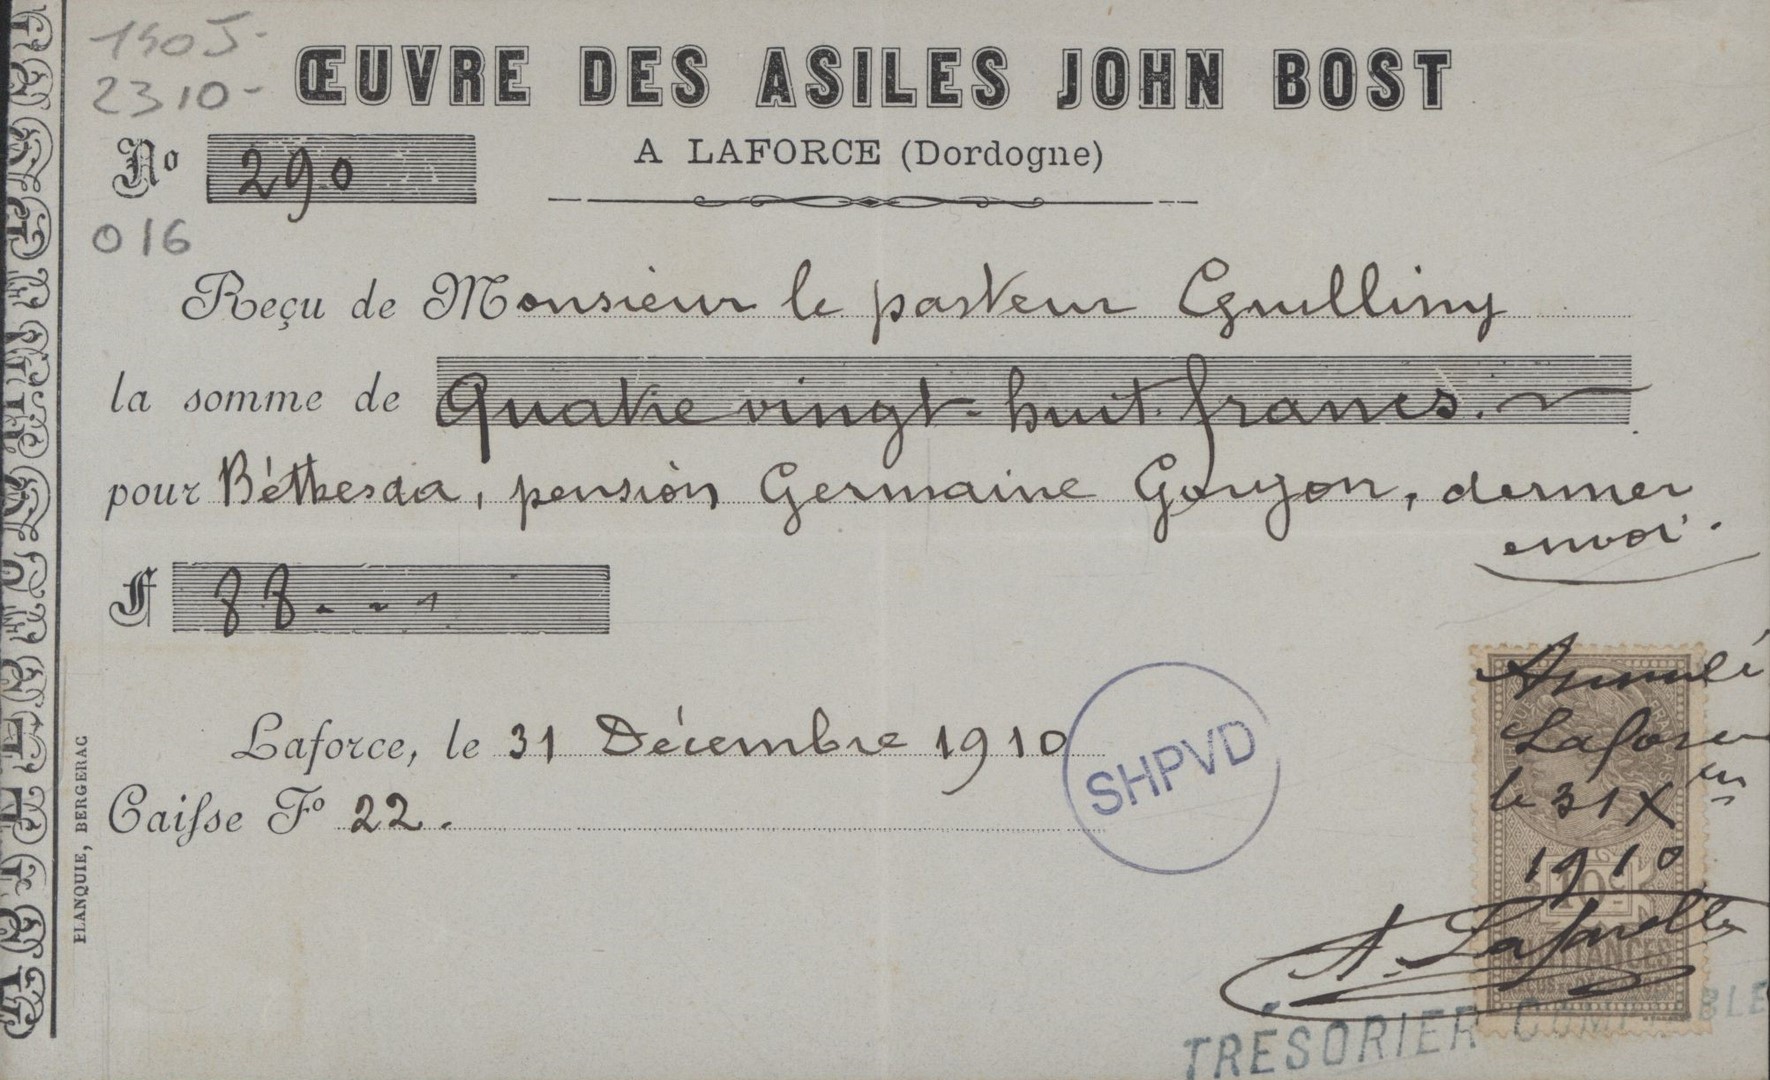 1505-
2310-
ŒUVRE DES ASILES JOHN BOST
A LAFORCE (Dordogne)
No 290
016
Reçu de Monsieur le pasteur
la somme de Quatre vingt-huit francs.
pour Béthesda, pension Germaine Goryon, dernier
envoi.
F 88
Laforce, le 31 Décembre 1910
Caisse Fo 22.
SHPVD
Annulé
Laforce
le 31 Xbre
1910
10c
QUITTANCES
A. Lafarelle
TRÉSORIER COMPTABLE
FLANQUIE, BERGERAC